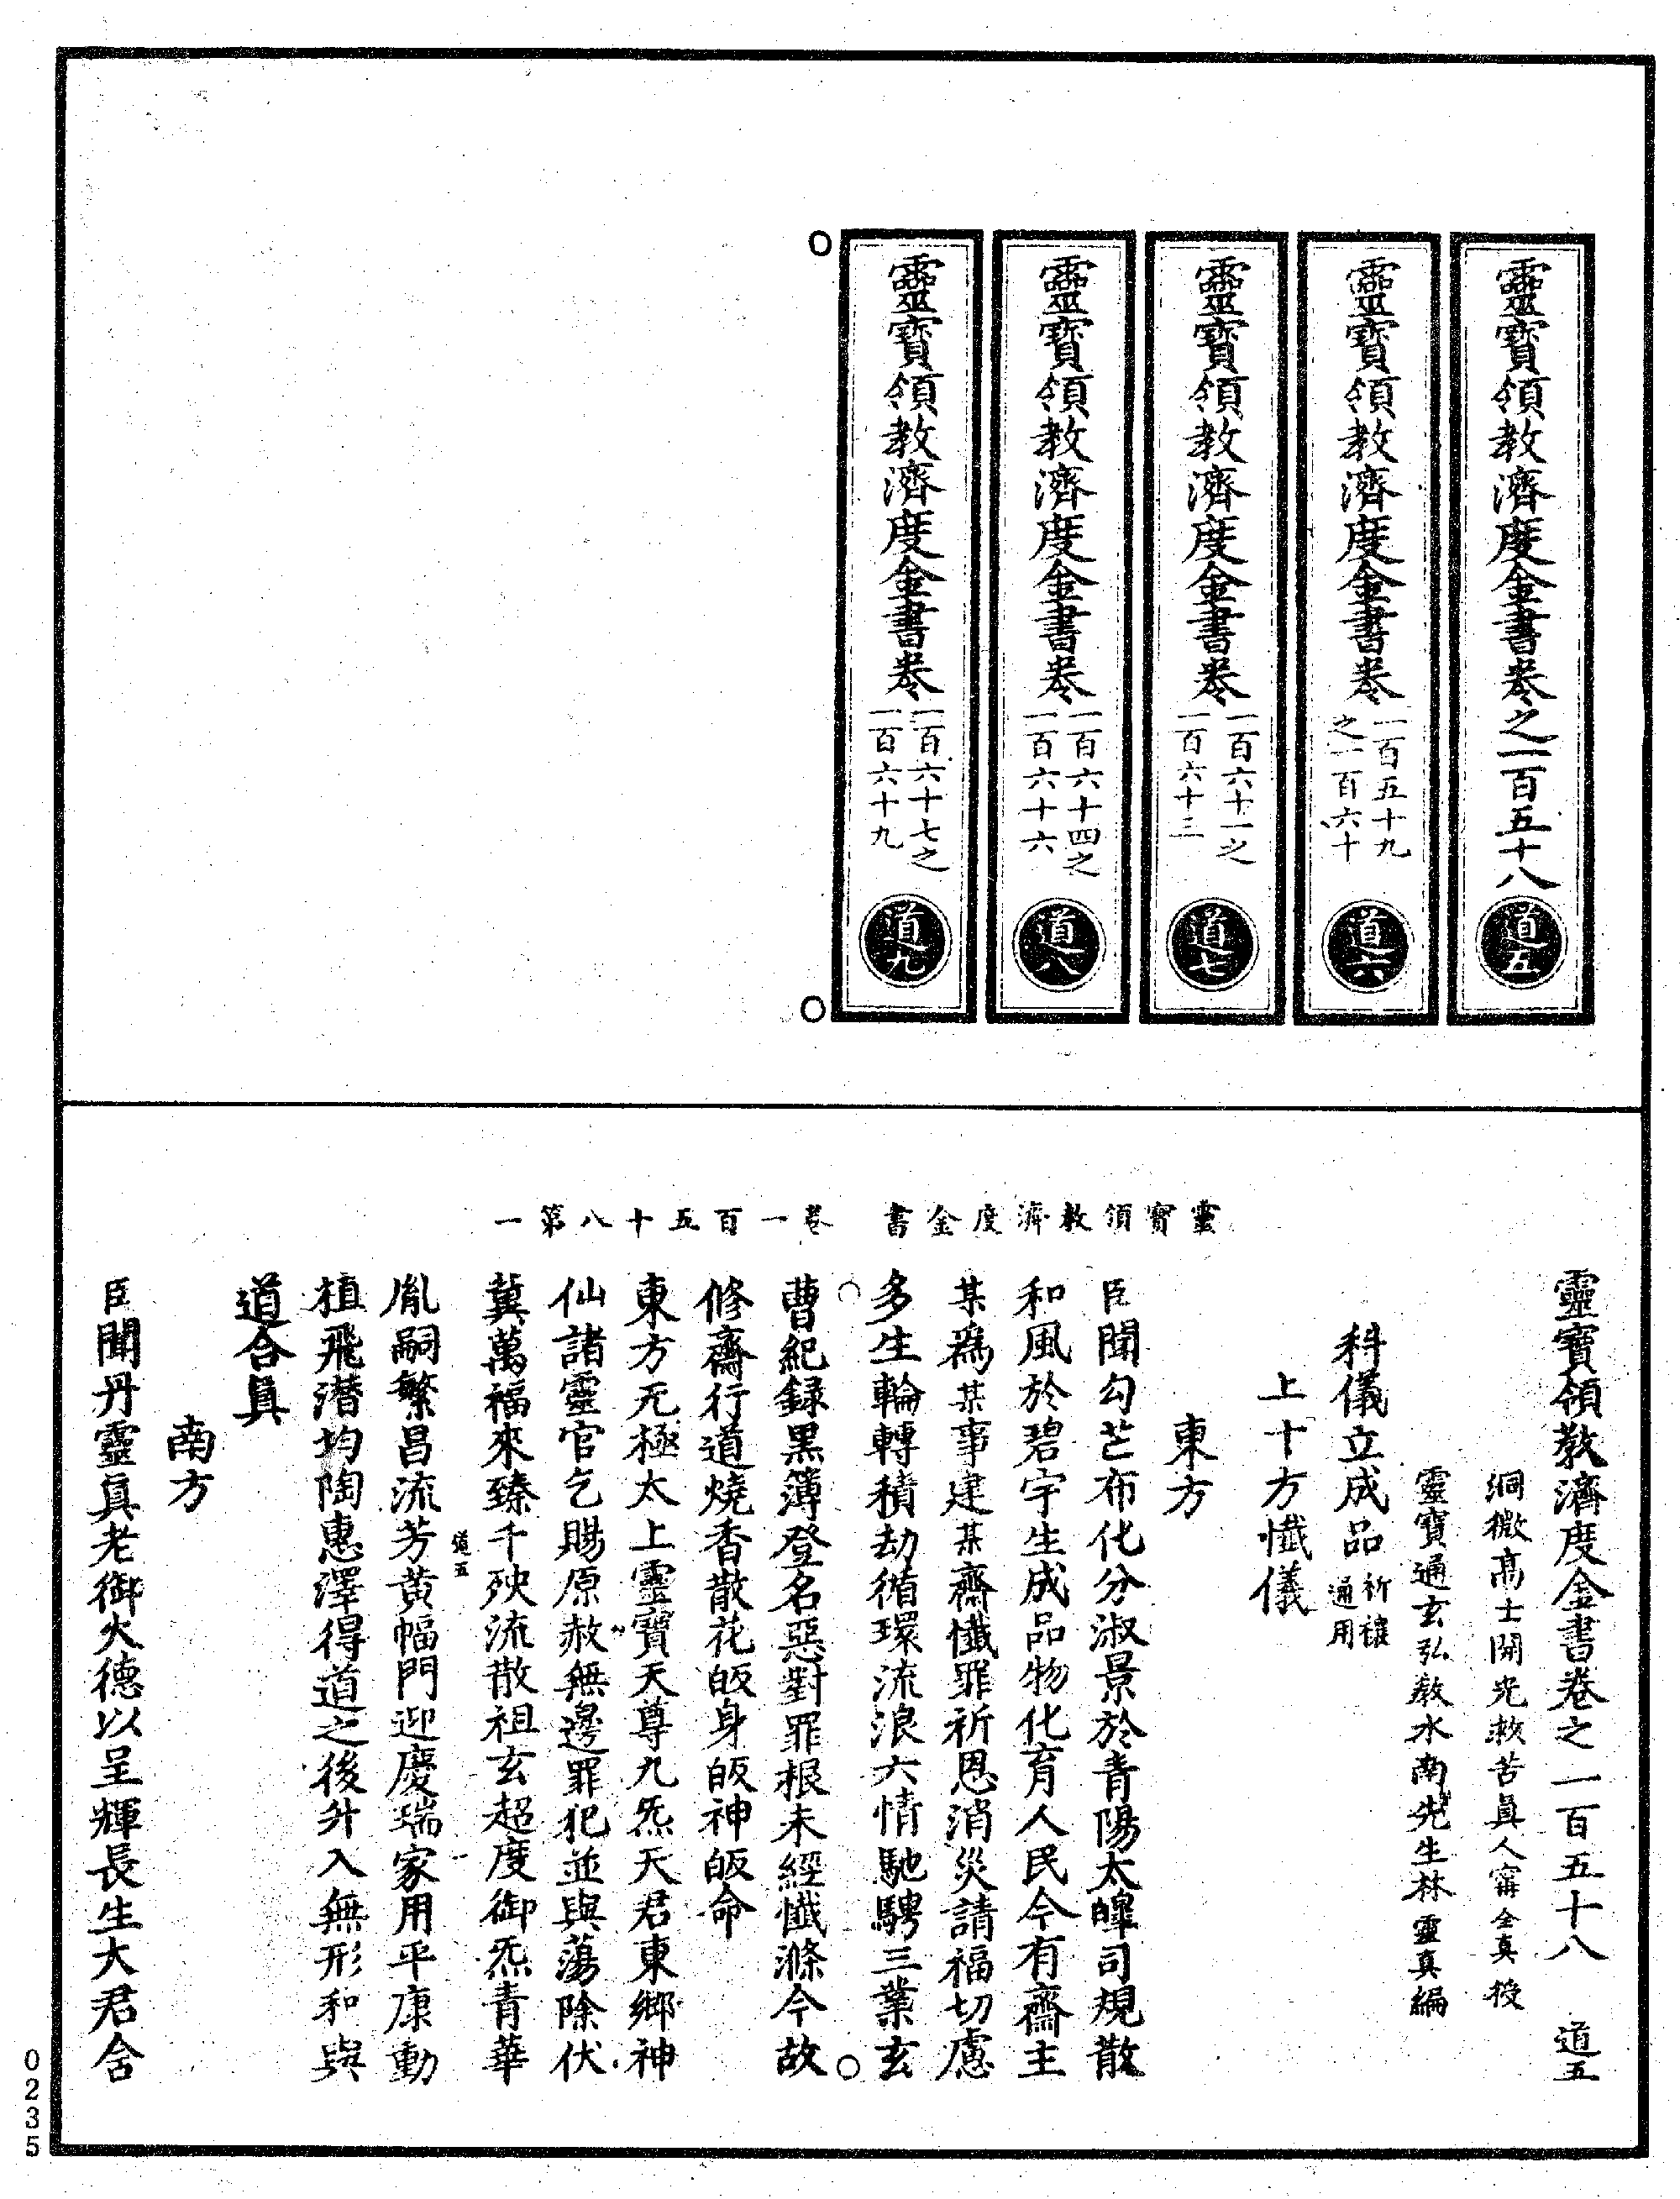 靈寶領教濟度金書卷之一百五十八
道五
靈寶領教濟度金書卷
一百五十九
之一百六十
道六
靈寶領教濟度金書卷
一百六十一之
一百六十三
道七
靈寶領教濟度金書卷
一百六十四之
一百六十六
道八
靈寶領教濟度金書卷
一百六十七之
一百六十九
道九
靈寶領教濟度金書 卷一百五十八第一
靈寶領教濟度金書卷之一百五十八 道五
洞微高士開光救苦眞人甯全真授
靈寶通玄弘教水南先生林靈真編
科儀立成品
祈禳
通用
上十方懺儀
東方
臣聞勾芒布化分淑景於青陽太皥司規散
和風於碧宇生成品物化育人民今有齋主
某爲某事建某齋懺罪祈恩消災請福切慮
多生輪轉積劫循環流浪六情馳騁三業玄
曹紀録黒簿登名惡對罪根未經懺滌今故
修齋行道燒香散花皈身皈神皈命
東方无極太上靈寶天尊九炁天君東鄉神
仙諸靈官乞賜原赦無邊罪犯並與蕩除伏
冀萬福來臻千殃流散祖玄超度御炁青華
道五
胤嗣繁昌流芳黄幅門迎慶瑞家用平康動
植飛潜均陶惠澤得道之後升入無形和與
道合眞
南方
臣聞丹靈眞老御火德以呈輝長生大君舍
0235